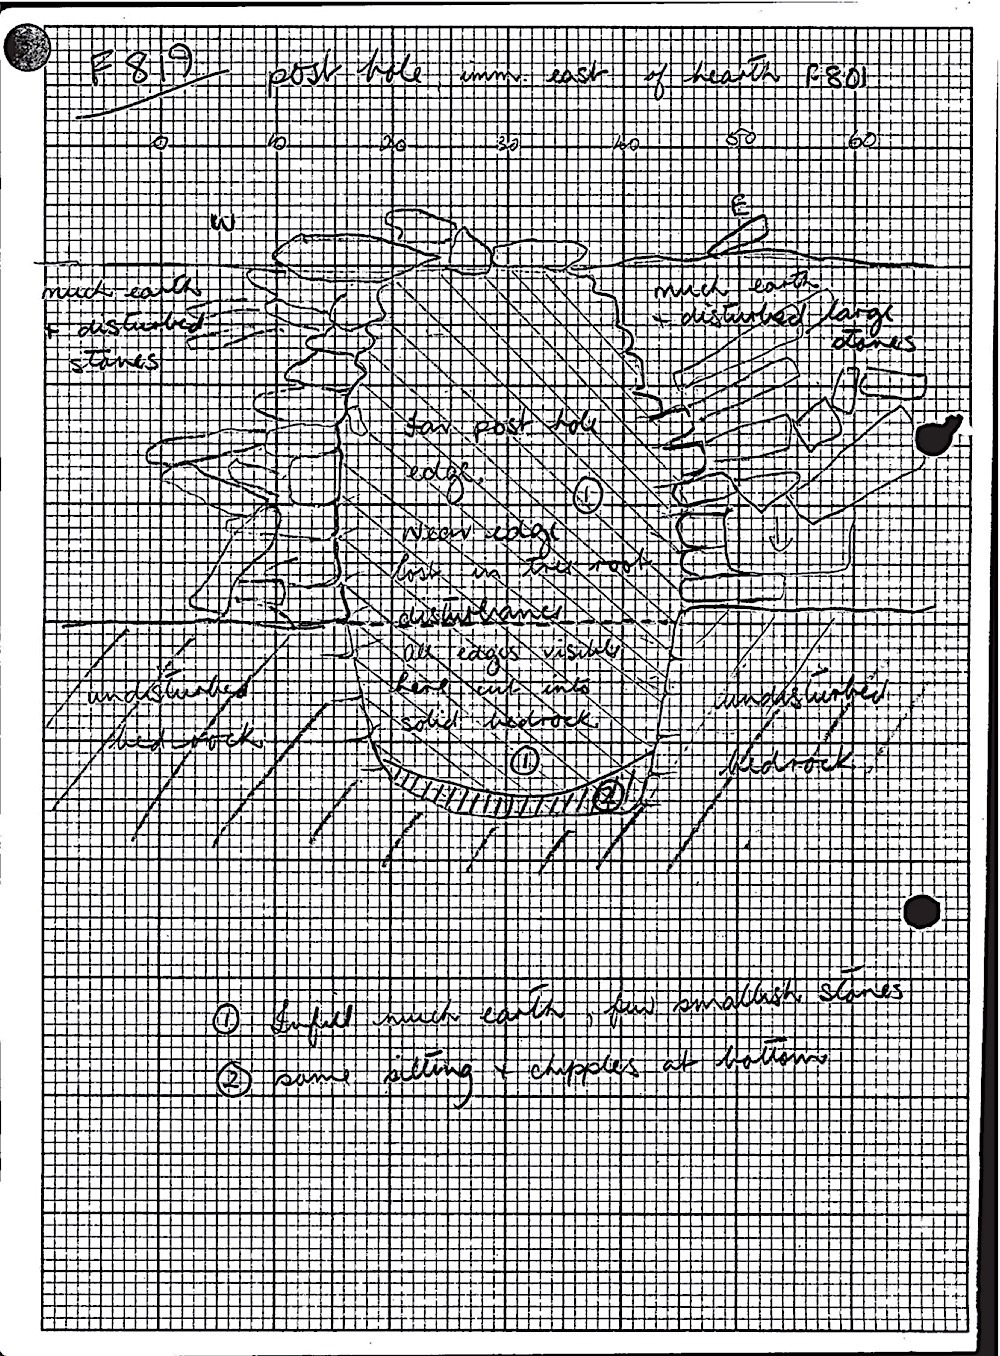 F819 post hole imm. east of hearth F801
0 10 20 30 40 50 60
W E
much earth
+ disturbed
stones
much earth
+ disturbed large
stones
far post hole
edge,
①
Near edge
lost in tree root
disturbance
all edges visible
here cut into
solid bedrock
①
②
undisturbed
bedrock
undisturbed
bedrock
① Infill much earth, few smallish stones
② some silting + chipples at bottom